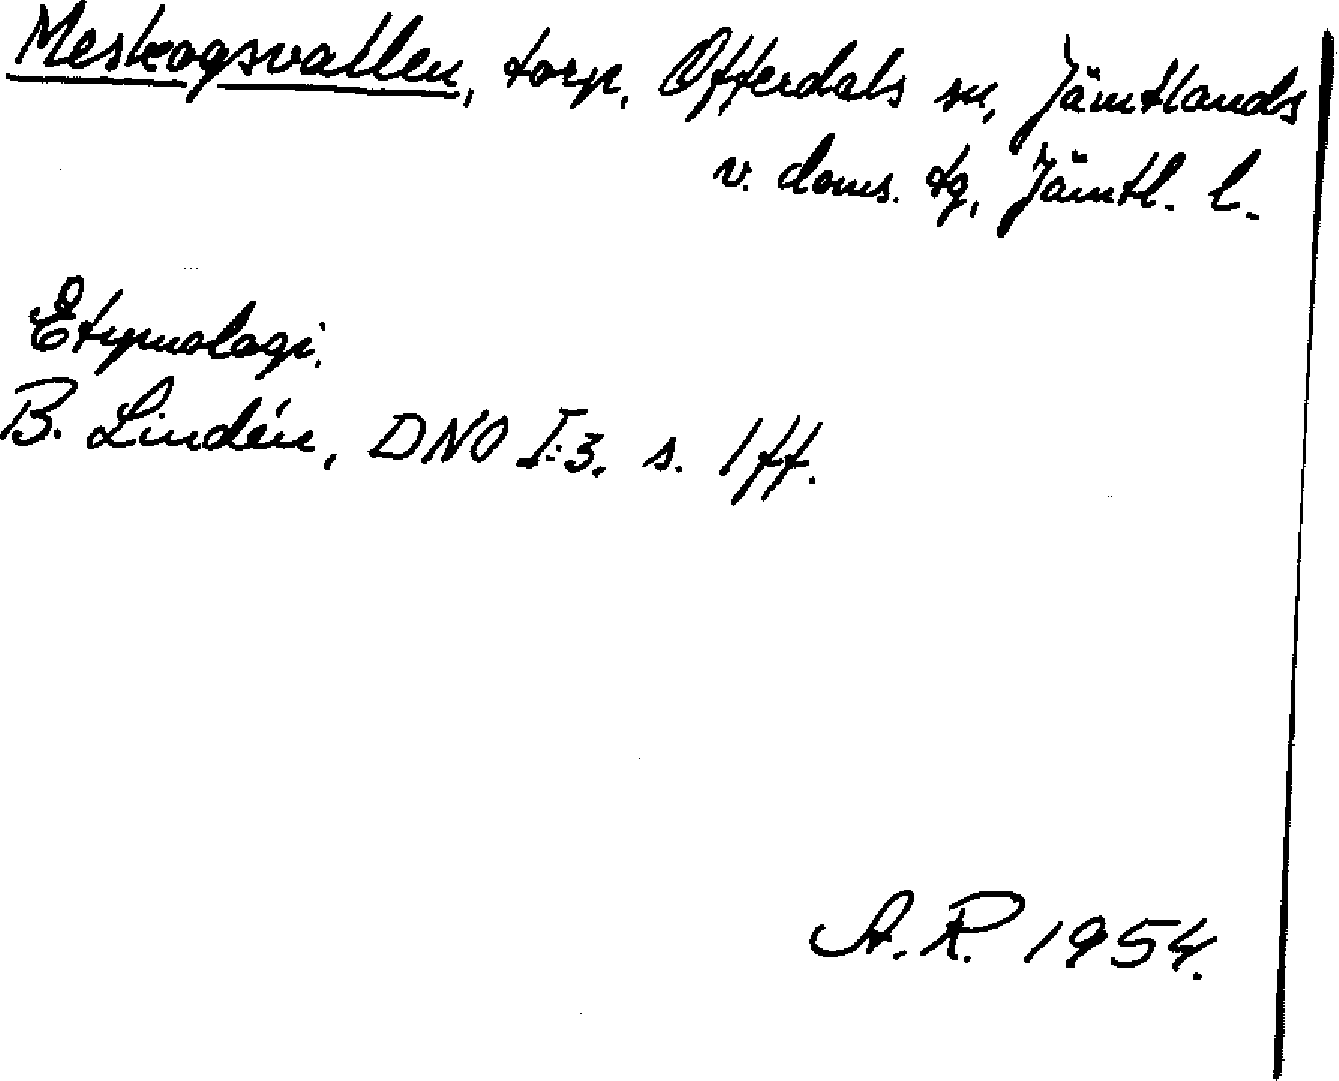 Meskogsvallen, torp, Offerdals sn, Jämtlands
v. doms. tg, Jämtl. l.
Etymologi.
B. Lindén, DNO I:3, s. 1 ff.
A.R. 1954.